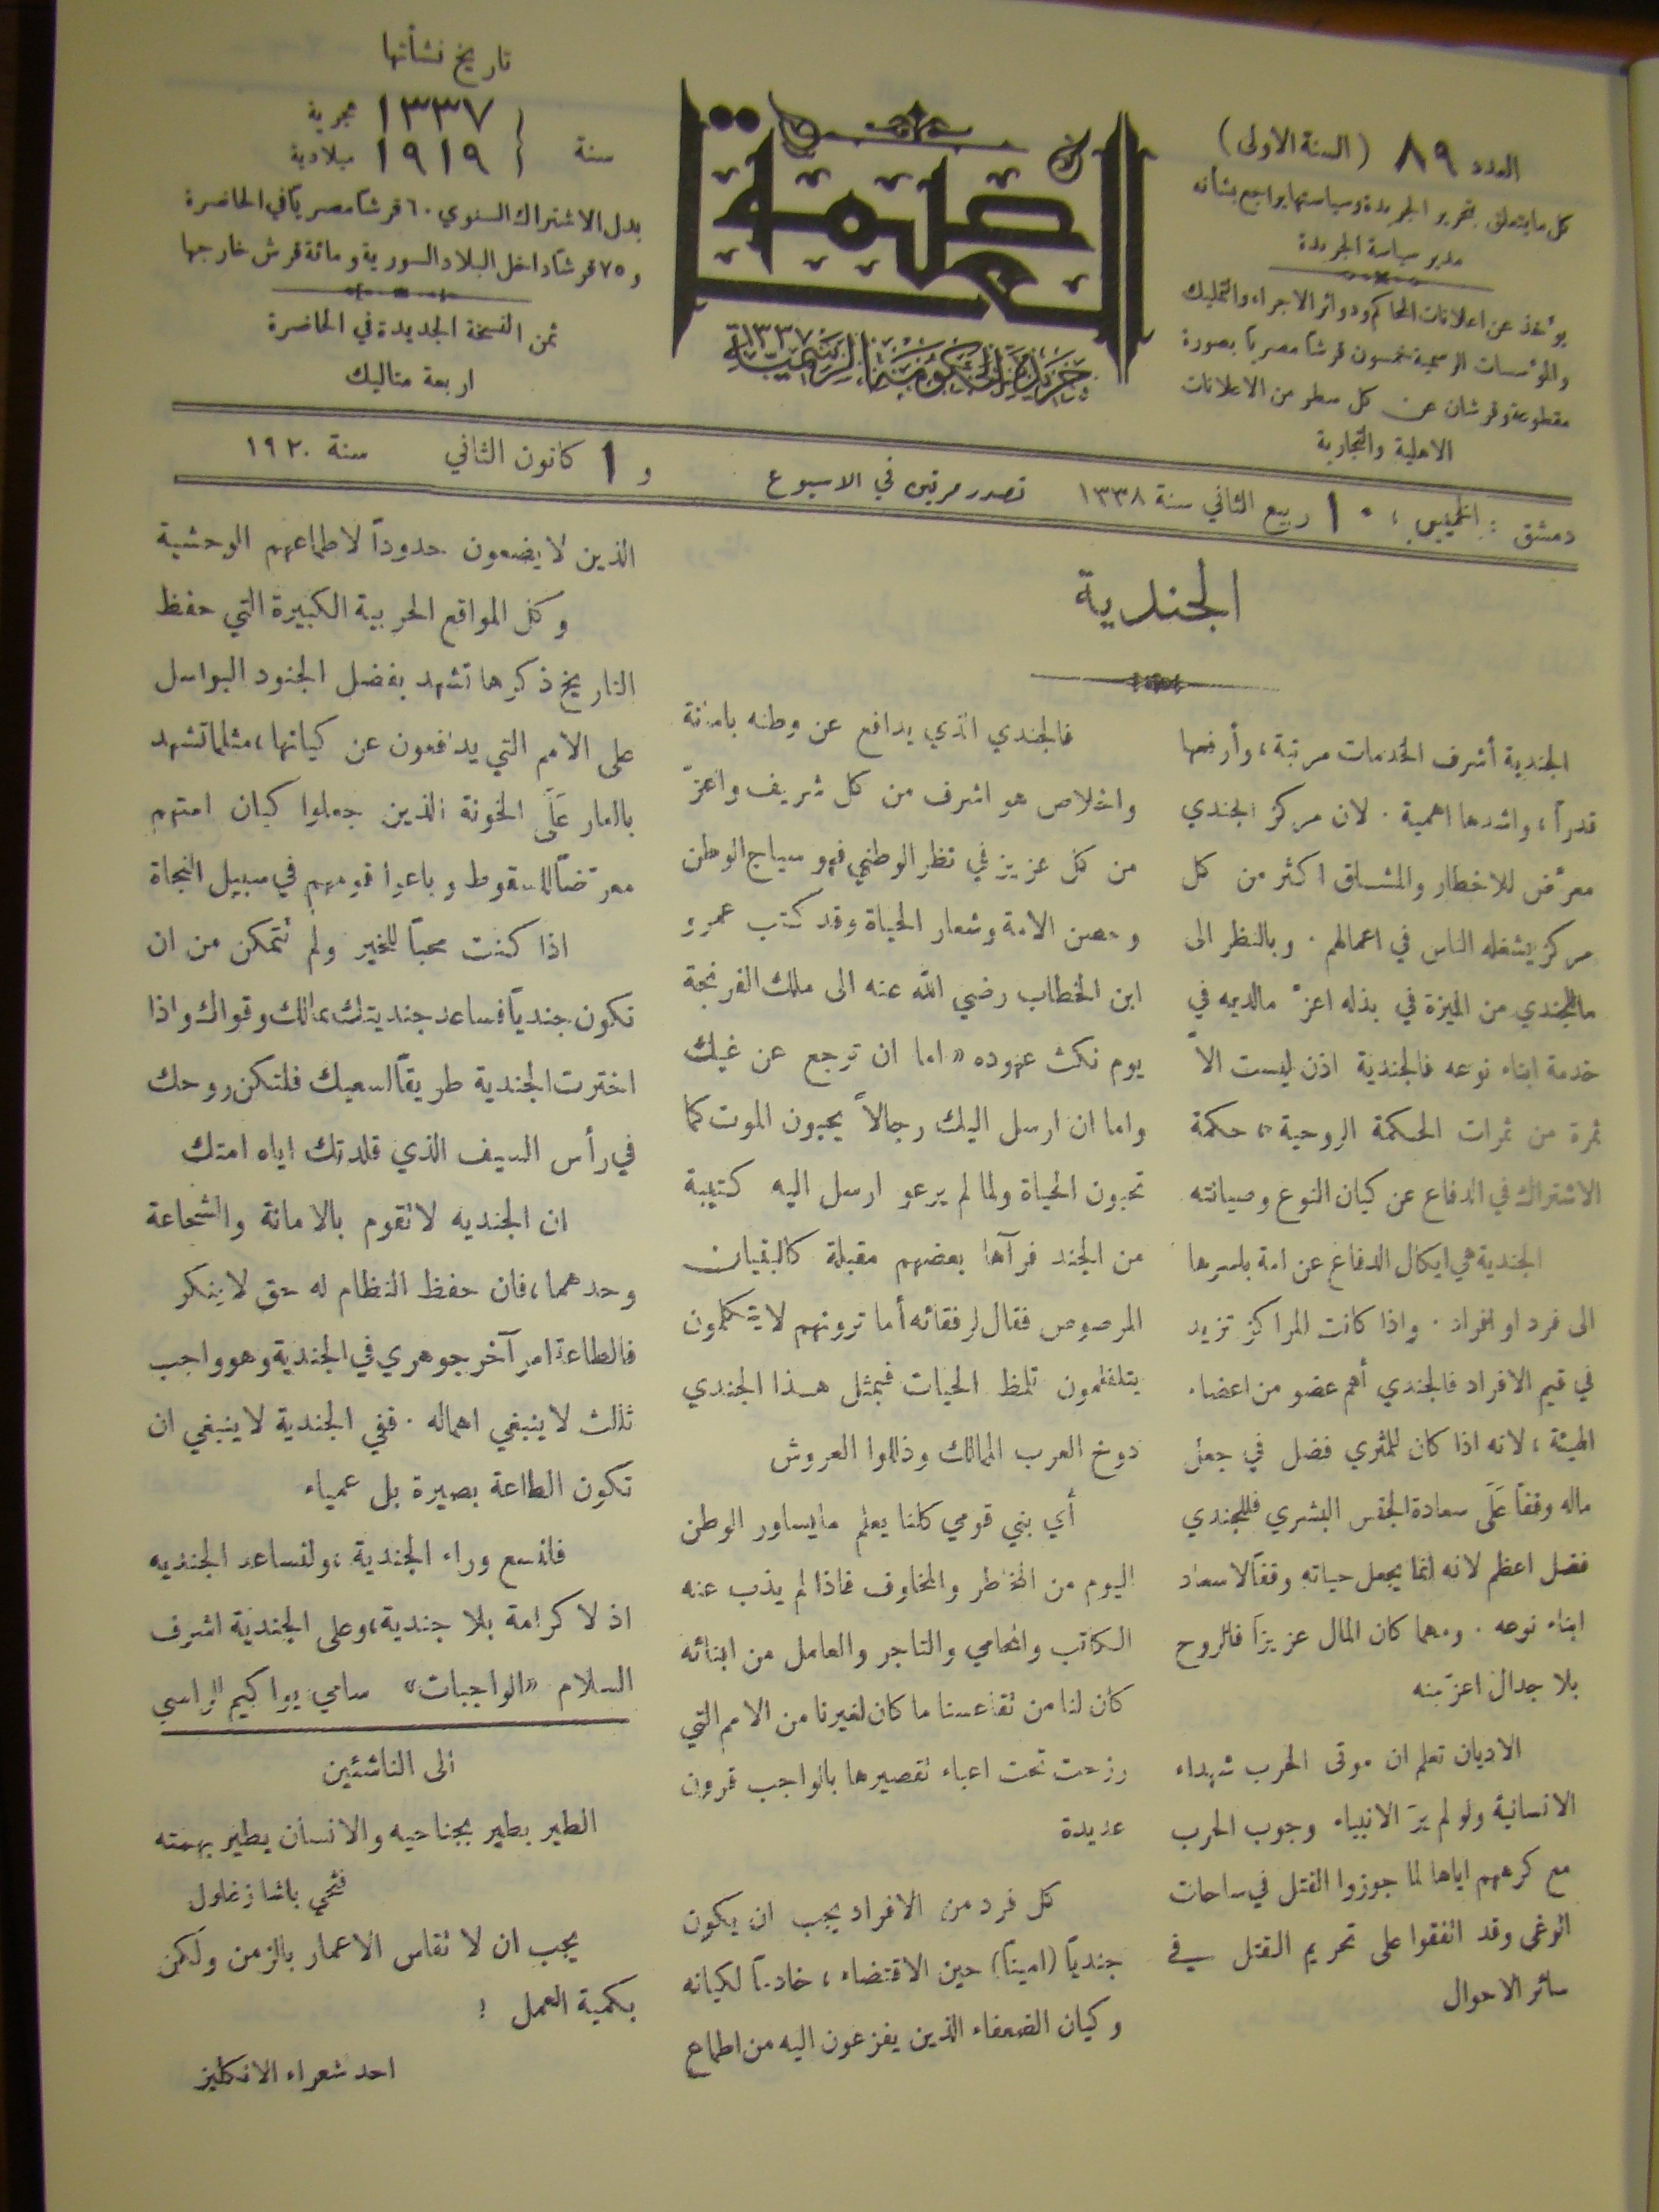 العدد ٨٩ (السنة الاولى)
كل ما يتعلق بتحرير الجريدة وسياستها يراجع بشأنه
مدير سياسة الجريدة
يؤخذ عن اعلانات المحاكم ودوائر الاجراء والتمليك
والمؤسسات الرسمية خمسون قرشاً مصرياً بصورة
مقطوعة وقرشان عن كل سطر من الاعلانات
الاهلية والتجارية
العاصمة
جريدة الحكومة الرسمية ١٣٣٧
تاريخ نشأتها
سنة
١٣٣٧ هجرية
١٩١٩ ميلادية
بدل الاشتراك السنوي ٦٠ قرشاً مصرياً في الحاضرة
و ٧٥ قرشاً داخل البلاد السورية ومائة قرش خارجها
ثمن النسخة الجديدة في الحاضرة
اربعة متاليك
دمشق : الخميس ، ١٠ ربيع الثاني سنة ١٣٣٨ تصدر مرتين في الاسبوع و ١ كانون الثاني سنة ١٩٢٠
الجندية
الجندية أشرف الخدمات مرتبة ، وأرفعها
قدراً ، واشدها اهمية . لان مركز الجندي
معرَّض للاخطار والمشاق اكثر من كل
مركز يشغله الناس في اعمالهم . وبالنظر الى
ما للجندي من الميزة في بذله اعزّ مالديه في
خدمة ابناء نوعه فالجندية اذن ليست الاّ
ثمرة من ثمرات الحكمة الروحية ، حكمة
الاشتراك في الدفاع عن كيان النوع وصيانته
الجندية هي ايكال الدفاع عن امة باسرها
الى فرد او افراد . واذا كانت المراكز تزيد
في قيم الافراد فالجندي أهم عضو من اعضاء
الهيئة ، لانه اذا كان للمثري فضل في جعل
ماله وقفاً عَلَى سعادة الجنس البشري فللجندي
فضل اعظم لانه انما يجعل حياته وقفاً لاسعاد
ابناء نوعه . ومهما كان المال عزيزاً فالروح
بلا جدال اعز منه
الاديان تعلم ان موتى الحرب شهداء
الانسانية ولو لم يرَ الانبياء وجوب الحرب
مع كرههم اياها لما جوزوا القتل في ساحات
الوغى وقد اتفقوا على تحريم القتل في
سائر الاحوال
فالجندي الذي يدافع عن وطنه بامانة
واخلاص هو اشرف من كل شريف واعزّ
من كل عزيز في نظر الوطني فهو سياج الوطن
وحصن الامة وشعار الحياة وقد كتب عمرو
ابن الخطاب رضي الله عنه الى ملك الفرنجة
يوم نكث عهوده « اما ان ترجع عن غيك
واما ان ارسل اليك رجالاً يحبون الموت كما
تحبون الحياة ولما لم يرعو ارسل اليه كتيبة
من الجند فرآها بعضهم مقبلة كالبنيان
المرصوص فقال لرفقائه أما ترونهم لا يتكلمون
يتلفظون تلمظ الحيات فبمثل هذا الجندي
دوخ العرب الممالك وذللوا العروش
أي بني قومي كلنا يعلم ما يساور الوطن
اليوم من المخاطر والمخاوف فاذا لم يذب عنه
الكاتب والمحامي والتاجر والعامل من ابنائه
كان لنا من تقاعسنا ما كان لغيرنا من الامم التي
رزحت تحت اعباء تقصيرها بالواجب قرون
عديدة
كل فرد من الافراد يجب ان يكون
جندياً (اميناً) حين الاقتضاء ، خادماً لكيانه
وكيان الضعفاء الذين يفزعون اليه من اطماع
الذين لا يضعون حدوداً لاطماعهم الوحشية
وكل المواقع الحربية الكبيرة التي حفظ
التاريخ ذكرها تشهد بفضل الجنود البواسل
على الامم التي يدافعون عن كيانها ، مثلما تشهد
بالعار عَلَى الخونة الذين جعلوا كيان امتهم
معرّضاً للسقوط وباعوا قومهم في سبيل النجاة
اذا كنت محباً للخير ولم تتمكن من ان
تكون جندياً فساعد جنديتك بمالك وقواك واذا
اخترت الجندية طريقاً لسعيك فلتكن روحك
في رأس السيف الذي قلدتك اياه امتك
ان الجنديه لا تقوم بالامانة والشجاعة
وحدهما ، فان حفظ النظام له حق لا ينكر
فالطاعة امر آخر جوهري في الجندية وهو واجب
ثالث لا ينبغي اهماله . ففي الجندية لا ينبغي ان
تكون الطاعة بصيرة بل عمياء
فلنسع وراء الجندية ، ولنساعد الجنديه
اذ لا كرامة بلا جندية ، وعلى الجندية اشرف
السلام «الواجبات» سامي يواكيم الراسي
الى الناشئين
الطير يطير بجناحيه والانسان يطير بهمته
فتحي باشا زغلول
يجب ان لا تقاس الاعمار بالزمن ولكن
بكمية العمل !
احد شعراء الانكليز